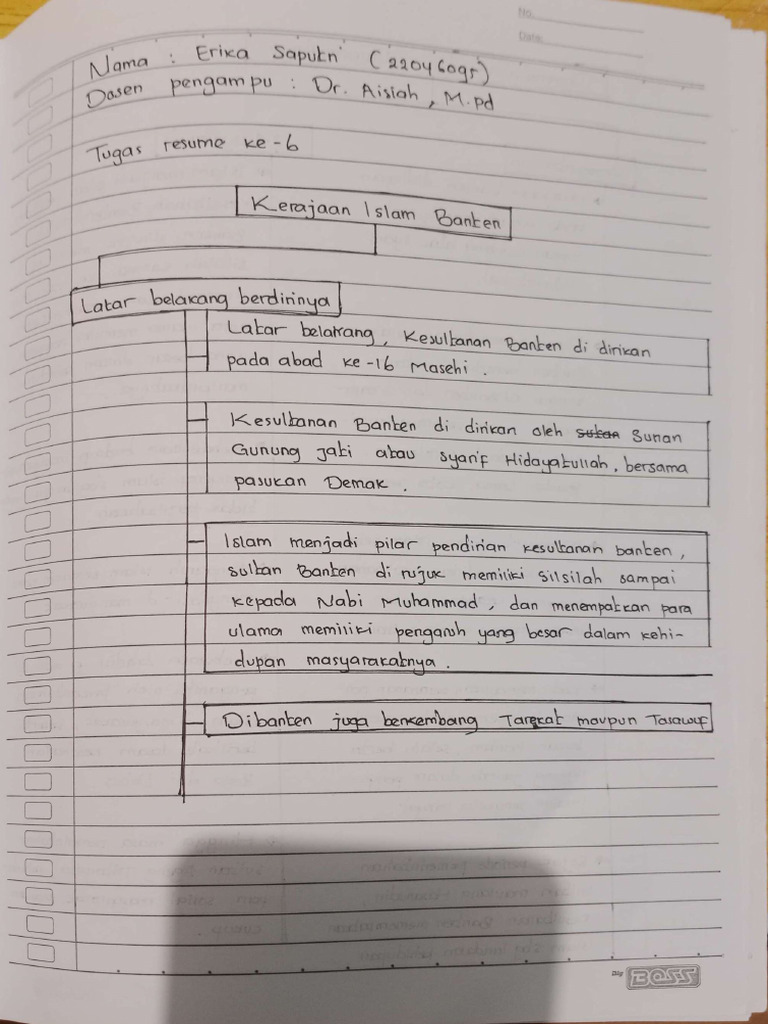 No.
Date.
Nama : Erika Saputri (22046095)
Dosen pengampu : Dr. Aisiah, M.pd
Tugas resume ke-6
Kerajaan Islam Banten
Latar belakang berdirinya
Latar belakang, Kesultanan Banten di dirikan
pada abad ke-16 Masehi.
Kesultanan Banten di dirikan oleh Sunan
Gunung jati atau Syarif Hidayatullah, bersama
pasukan Demak.
Islam menjadi pilar pendirian kesultanan banten,
sultan Banten di rujuk memiliki silsilah sampai
kepada Nabi Muhammad, dan menempatkan para
ulama memiliki pengaruh yang besar dalam kehi-
dupan masyarakatnya.
Dibanten juga berkembang Tarekat maupun Tasawuf
BOSS